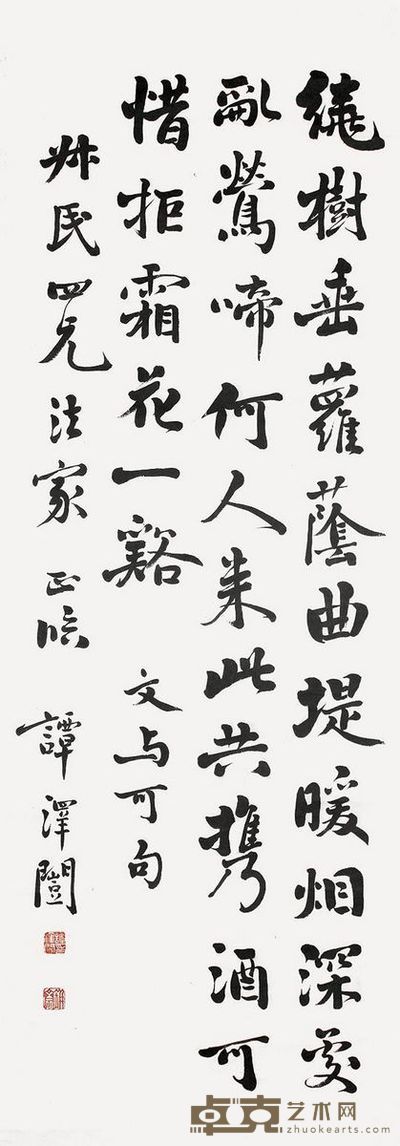 繞樹垂蘿蔭曲堤暖烟深處
亂鶯啼何人来此共携酒可
惜拒霜花一谿
文与可句
叔民四兄法家正临
譚澤闓
卓克艺术网
zhuokearts.com